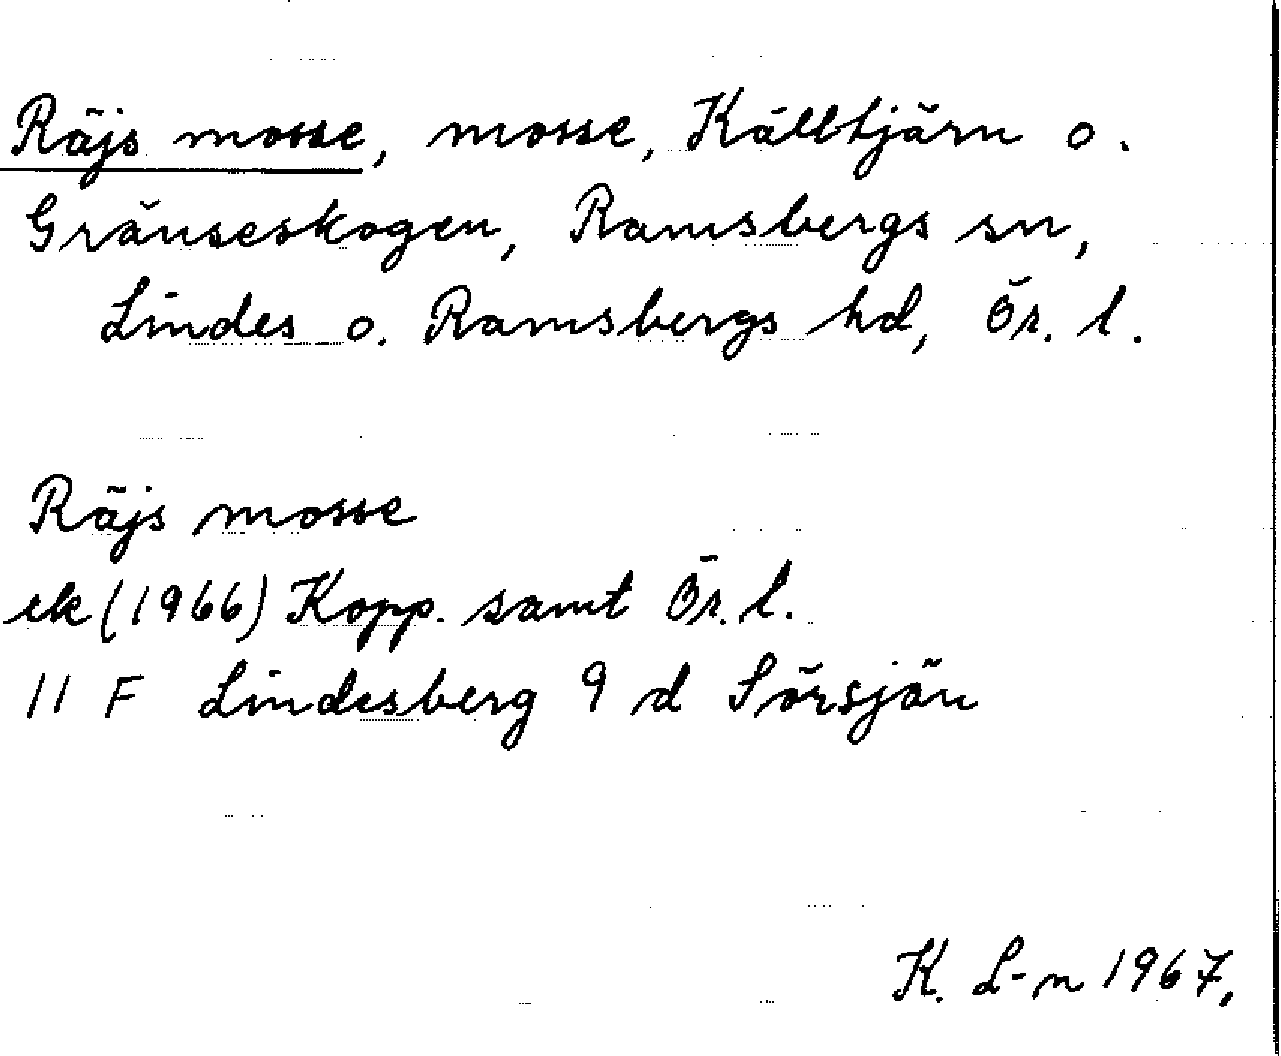 Räjs mosse, mosse, Källtjärn o.
Gränseskogen, Ramsbergs sn,
Lindes o. Ramsbergs hd, Ör. l.
Räjs mosse
ek (1966) Kopp. samt Ör. l.
11 F Lindesberg 9 d Sörsjön
K. L-n 1967,